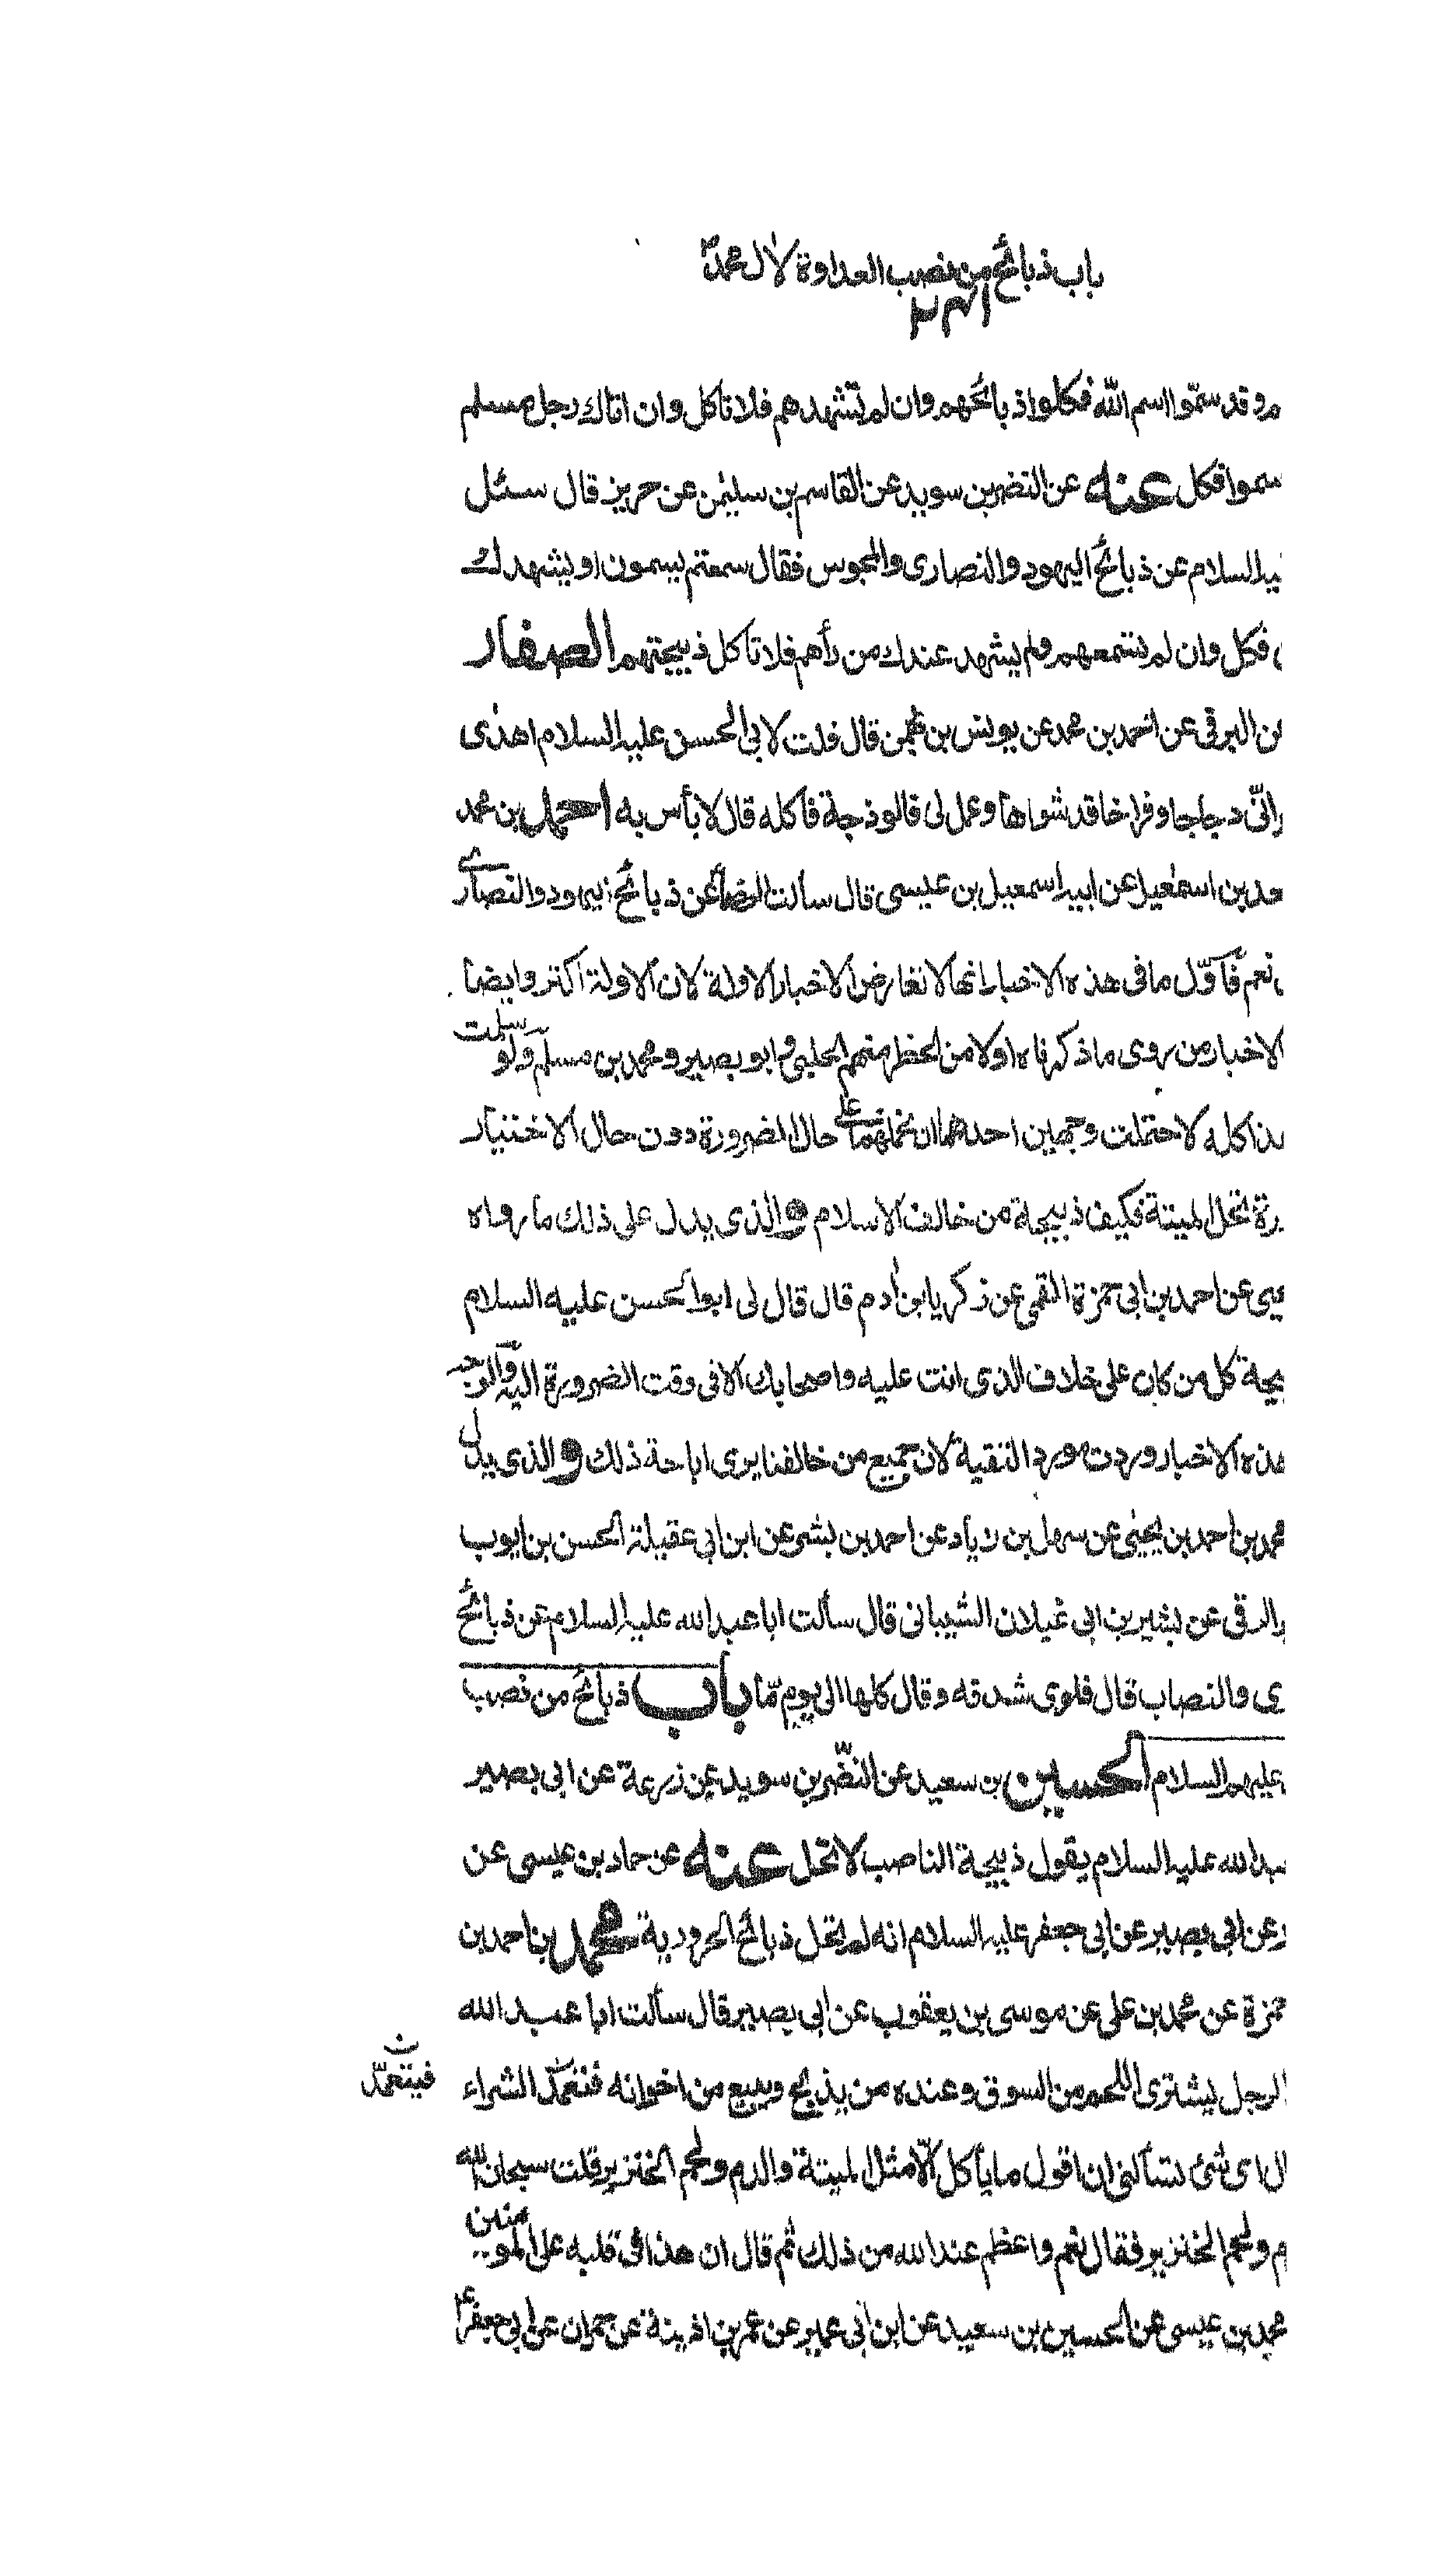 باب ذبائح من نصب العداوة لال محمد
م وقد سمّوا اسم الله فكلوا ذبائحهم وان لم تشهدهم فلا تاكل وان اتاك رجل مسلم
سموا فكل عنه عن النضر بن سويد عن القاسم بن سليمن عن حريز قال سئل
يه السلام عن ذبائح اليهود والنصارى والمجوس فقال سمعتم يسمون او يشهد لك
فكل وان لم تسمعهم ولم يشهد عندك من رأهم فلا تأكل ذبيحتهم الصفار
ن البرقى عن احمد بن محمد عن يونس بن بهمن قال قلت لابى الحسن عليه السلام اهدى
رانىّ دجاجا وفراخا قد شواها وعمل لى فالوذجة فآكله قال لا بأس به احمد بن محمد
سعد بن اسمعيل عن ابيه اسمعيل بن عيسى قال سألت الرضا عن ذبائح اليهود والنصارى
نعم فأوّل ما فى هذه الاخبار انها لا تعارض الاخبار الاولة لان الاولة اكثر وايضا
الاخبار من روى ما ذكرناه اولا من الحظر منهم الحلبى وابو بصير ومحمد بن مسلم ولو سلمت
هذا كله لاحتملت وجهين احدهما ان نحملها على حال الضرورة دون حال الاختيار
رة تحل الميتة فكيف ذبيحة من خالف الاسلام والذى يدل على ذلك ما رواه
يسى عن احمد بن ابى حمزة القمى عن زكريا ابن أدم قال قال لى ابو الحسن عليه السلام
بيحة كل من كان على خلاف الذى انت عليه واصحابك الا فى وقت الضرورة اليه والوجه
هذه الاخبار وردت مورد التقية لان جميع من خالفنا يرى اباحة ذلك والذى يدل
محمد بن احمد بن يحيى عن سهل بن زياد عن احمد بن بشر عن ابن ابى عقيلة الحسن بن ايوب
الرقى عن بشير بن ابى غيلان الشيبانى قال سألت ابا عبد الله عليه السلام عن ذبائح
ى والنصاب قال فلوى شدقه وقال كلها الى يوم مّا باب ذبائح من نصب
عليهم السلام الحسين بن سعيد عن النضّر بن سويد عن زرعة عن ابى بصير
عبد الله عليه السلام يقول ذبيحة الناصب لا تحل عنه عن حماد بن عيسى عن
عن ابى بصير عن ابى جعفر عليه السلام انه لم تحل ذبائح الحرورية محمد بن احمد بن
حمزة عن محمد بن على عن موسى بن يعقوب عن ابى بصير قال سألت ابا عبد الله
الرجل يشترى اللحم من السوق وعنده من يذبح ويبيع من اخوانه فتعمّد الشراء
فيتعمّد ن
ال اى شئ تسألنى ان اقول ما يأكل الّا مثل الميتة والدم ولحم الخنزير قلت سبحان الله
م ولحم الخنزير فقال نعم واعظم عند الله من ذلك ثم قال ان هذا فى قلبه على المؤمنين
محمد بن عيسى عن الحسين بن سعيد عن ابن ابى عمير عن عمر بن اذينة عن حمران عن ابى جعفر